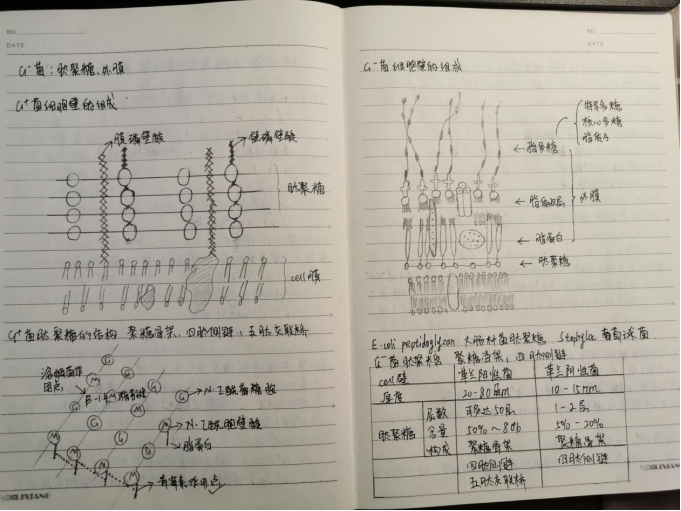 NO.
DATE
G⁻菌：肽聚糖、外膜
G⁺菌细胞壁的组成
膜磷壁酸
壁磷壁酸
肽聚糖
cell膜
G⁺菌肽聚糖的结构 聚糖骨架，四肽侧链，五肽交联桥
溶菌酶作
用点
β-1.4
糖苷键
G
M
N-乙酰葡糖胺
N-乙酰胞壁酸
脂蛋白
青霉素作用点
LIXIANG
NO.
DATE
G⁻菌细胞壁的组成
特异多糖
核心多糖
脂质A
←脂多糖
←脂质双层
外膜
←脂蛋白
←肽聚糖
E.coli peptidoglycan 大肠杆菌肽聚糖. Staphyloc 葡萄球菌
G⁻菌肽聚糖 聚糖骨架，四肽侧链
cell壁 革兰阳性菌 革兰阴性菌
厚度 20-80nm 10-15nm
肽聚糖 层数 可多达50层 1-2层
含量 50%~80% 5%-20%
构成 聚糖骨架 聚糖骨架
四肽侧链 四肽侧链
五肽交联桥
LIXIANG